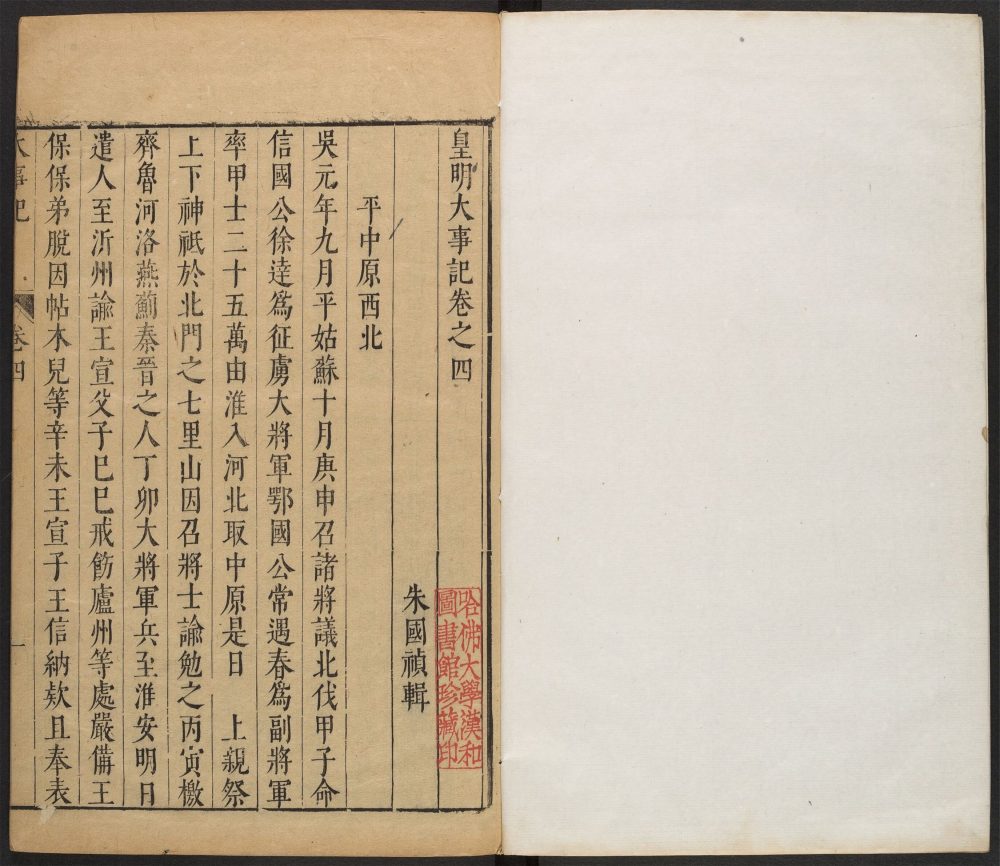 皇明大事記卷之四
哈佛大學漢和
圖書館珍藏印
朱國禎輯
平中原西北
吳元年九月平姑蘇十月庚申召諸將議北伐甲子命
信國公徐達爲征虜大將軍鄂國公常遇春爲副將軍
率甲士二十五萬由淮入河北取中原是日　上親祭
上下神祇於北門之七里山因召將士諭勉之丙寅檄
齊魯河洛燕薊秦晉之人丁卯大將軍兵至淮安明日
遣人至沂州諭王宣父子巳巳戒飭廬州等處嚴備王
保保弟脫因帖木兒等辛未王宣子王信納欵且奉表
大事記　卷四　一